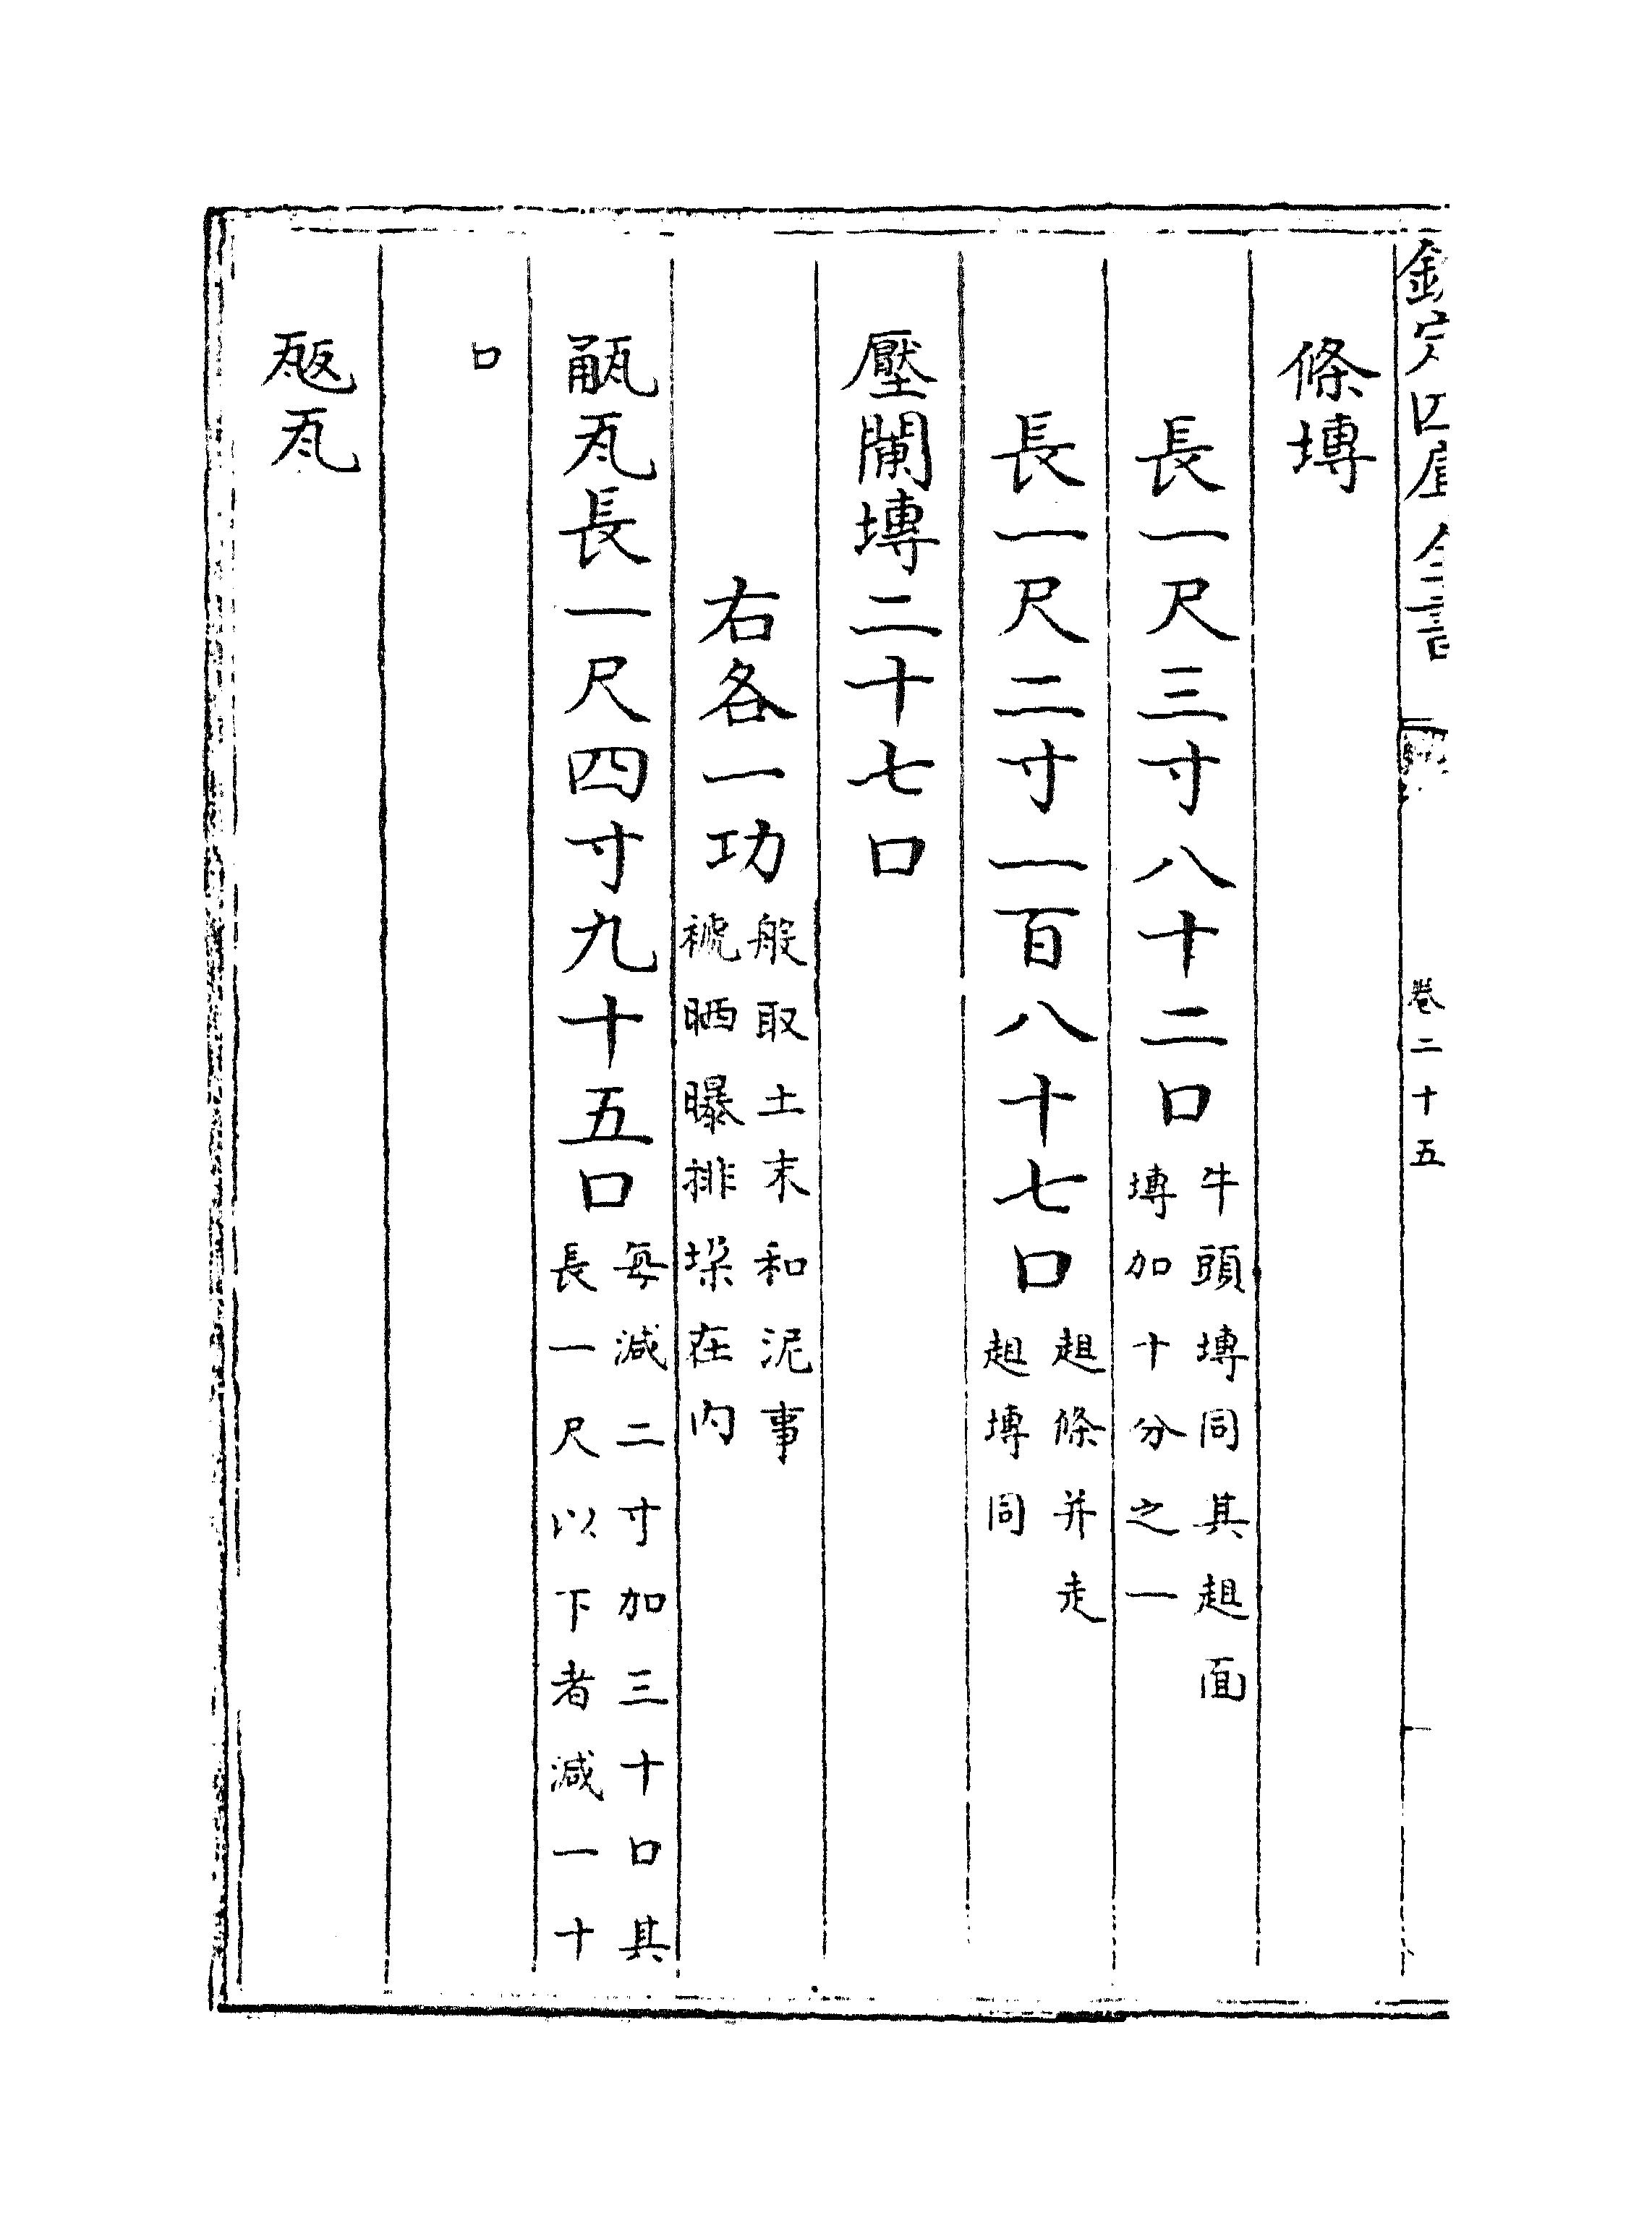 欽定四庫全書 卷二十五
條塼
長一尺三寸八十二口牛頭塼同其趄面
塼加十分之一
長一尺二寸一百八十七口趄條并走
趄塼同
壓闌塼二十七口
右各一功般取土末和泥事
褫晒曝排垛在内
㼧瓦長一尺四寸九十五口每減二寸加三十口其
長一尺以下者減一十
口
瓪瓦